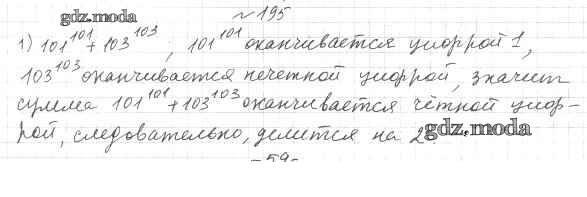 №195
gdz.moda
1) 101^101 + 103^103; 101^101 оканчивается цифрой 1,
103^103 оканчивается нечетной цифрой, значит
сумма 101^101 + 103^103 оканчивается чётной циф-
рой, следовательно, делится на 2
gdz.moda
-59-